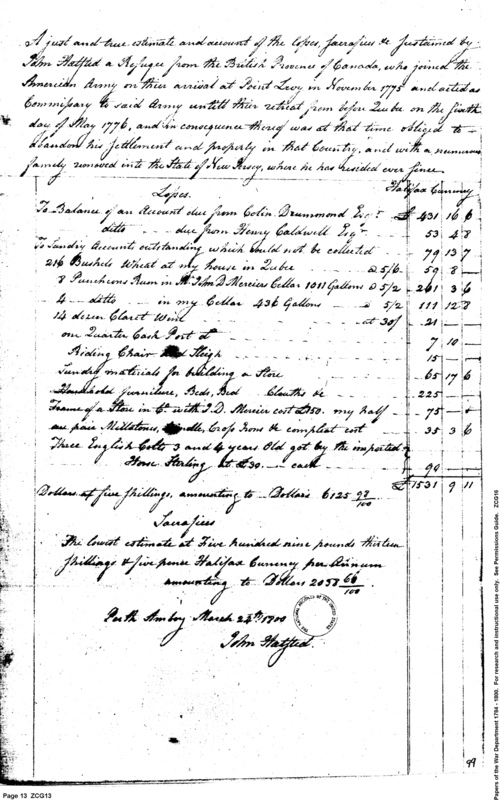 A just and true estimate and account of the losses, sacrafices &c sustained by
John Hatfied a Refugee from the British Provence of Canada, who joined the
American Army on thier arrival at Point Levy in November 1775 and acted as
Commissary to said Army untill thier retreat from before Quebec on the sixth
day of May 1776, and in consequence thereof was at that time obliged to
abandon his settlement and property in that Country, and with a numerous
family removed into the State of New Jersey, where he has resided ever since.
Losses. Halifax Currency
To Balance of an Account due from Colin Drummond Esqr £ 431 16 6
ditto due from Henry Caldwell Esqr 53 4 8
To Sundry Accounts outstanding which could not be collected 79 13 7
216 Bushels Wheat at my house in Quebec @ 5/6 59 8 —
8 Puncheons Rum in Mr John D. Merciers Cellar 1011 Gallons @ 5/2 261 3 6
4 ditto in my Cellar 436 Gallons @ 5/2 111 12 8
14 dozen Claret Wine at 30/ 21 — —
one Quarter Cask Port do 7 10 —
Riding Chair and Sleigh 15 — —
Sundry materials for building a Store 65 17 6
Household furniture, Beds, Bed Clouths &c 225 — —
Frame of a Store in Co with J. D. Mercier cost £150. my half 75 —
one pair Millstones, Spindle, Cross Irons &c compleat cost 35 3 6
Three English Colts 3 and 4 years Old got by the imported
Horse Sterling at £30 each 90 —
£ 1531 9 11
Dollars at five shillings, amounting to Dollars 6125 98/100
Sacrafices
The lowest estimate at Five hundred nine pounds thirteen
shillings & five pence Halifax Currency per Annum
amounting to Dollars 2038 66/100
Perth Amboy March 24th 1800
John Hatfied.
99
Page 13 ZCG13
Papers of the War Department 1784 - 1800. For research and instructional use only. See Permissions Guide. ZCG16